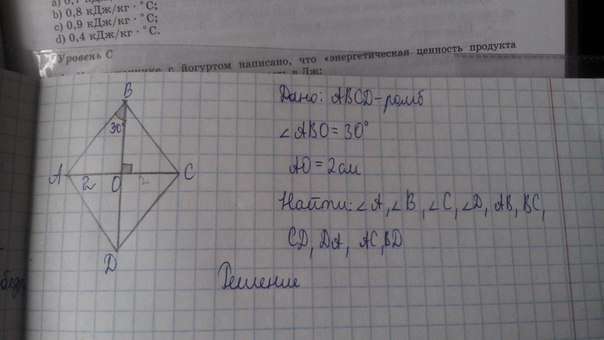 b) 0,8 кДж/кг · °C;
c) 0,9 кДж/кг · °C;
d) 0,4 кДж/кг · °C.
Уровень С
с йогуртом написано, что «энергетическая ценность продукта
B
30°
A
2
O
2
C
D
Дано: ABCD-ромб
∠ABO=30°
AO=2см
Найти: ∠A, ∠B, ∠C, ∠D, AB, BC,
CD, DA, AC, BD
Решение